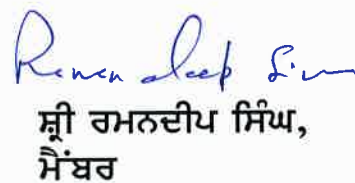 Ramandeep Sin
ਸ਼੍ਰੀ ਰਮਨਦੀਪ ਸਿੰਘ,
ਮੈਂਬਰ